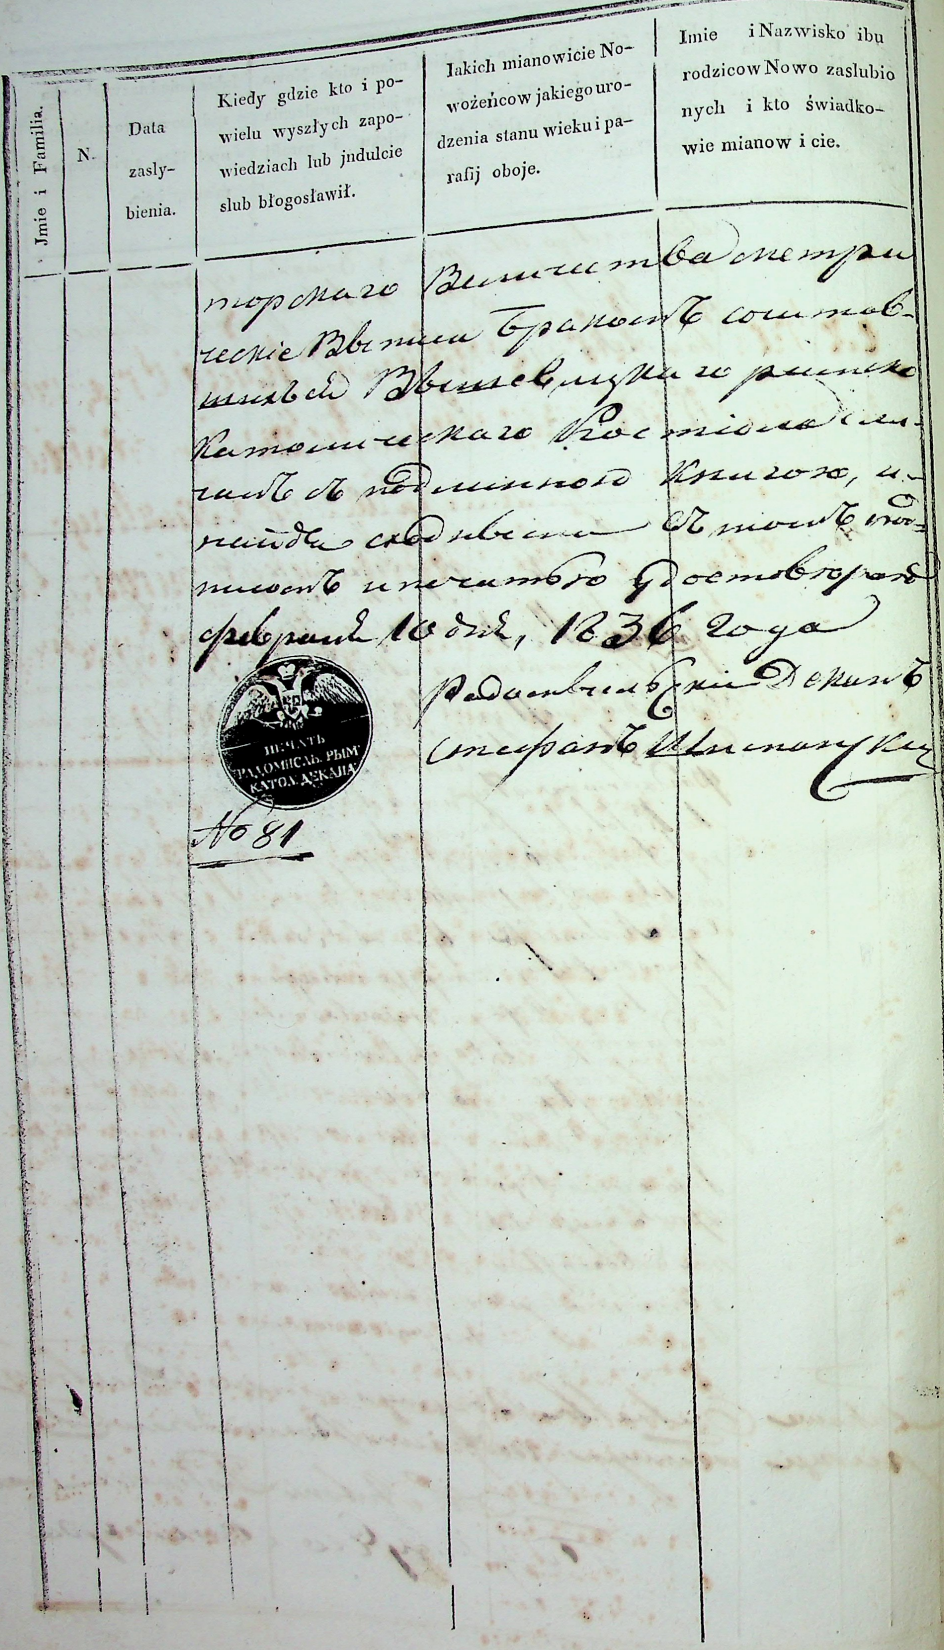 Jmie i Familia.
N.
Data
zasly-
bienia.
Kiedy gdzie kto i po-
wielu wyszłych zapo-
wiedziach lub jndulcie
slub błogosławił.
Iakich mianowicie No-
wożeńcow jakiego uro-
dzenia stanu wieku i pa-
rafij oboje.
Imie i Nazwisko ibu
rodzicow Nowo zaslubio
nych i kto świadko-
wie mianow i cie.
торскаго Величества метри
ческіе
Бракомъ состав-
римско
Католическаго Костіола сли-
чалъ съ подлинною Книгою, и
сходнвеми въ томъ под-
писомъ и печатью удостоверяю
февраля 10 дня, 1836 года
Радомысльскій Деканъ
Стефанъ
ПЕЧАТЬ
РАДОМЫСЛЬ. РЫМ.
КАТОЛ. ДЕКАНА
No 81